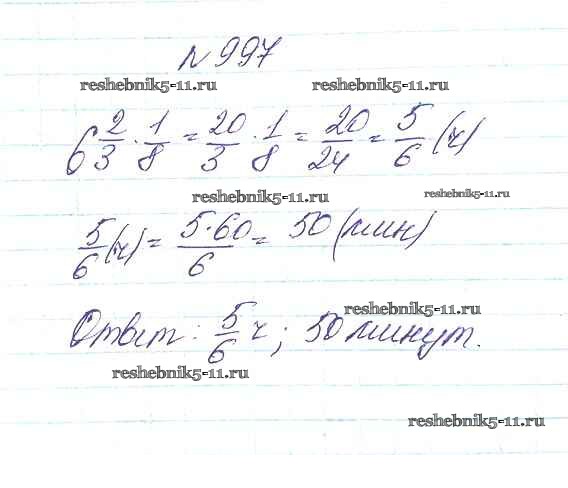 №997
reshebnik5-11.ru reshebnik5-11.ru
6 2/3 · 1/8 = 20/3 · 1/8 = 20/24 = 5/6 (ч)
reshebnik5-11.ru reshebnik5-11.ru
5/6 (ч) = 5·60/6 = 50 (мин)
reshebnik5-11.ru
Ответ: 5/6 ч; 50 минут.
reshebnik5-11.ru
reshebnik5-11.ru